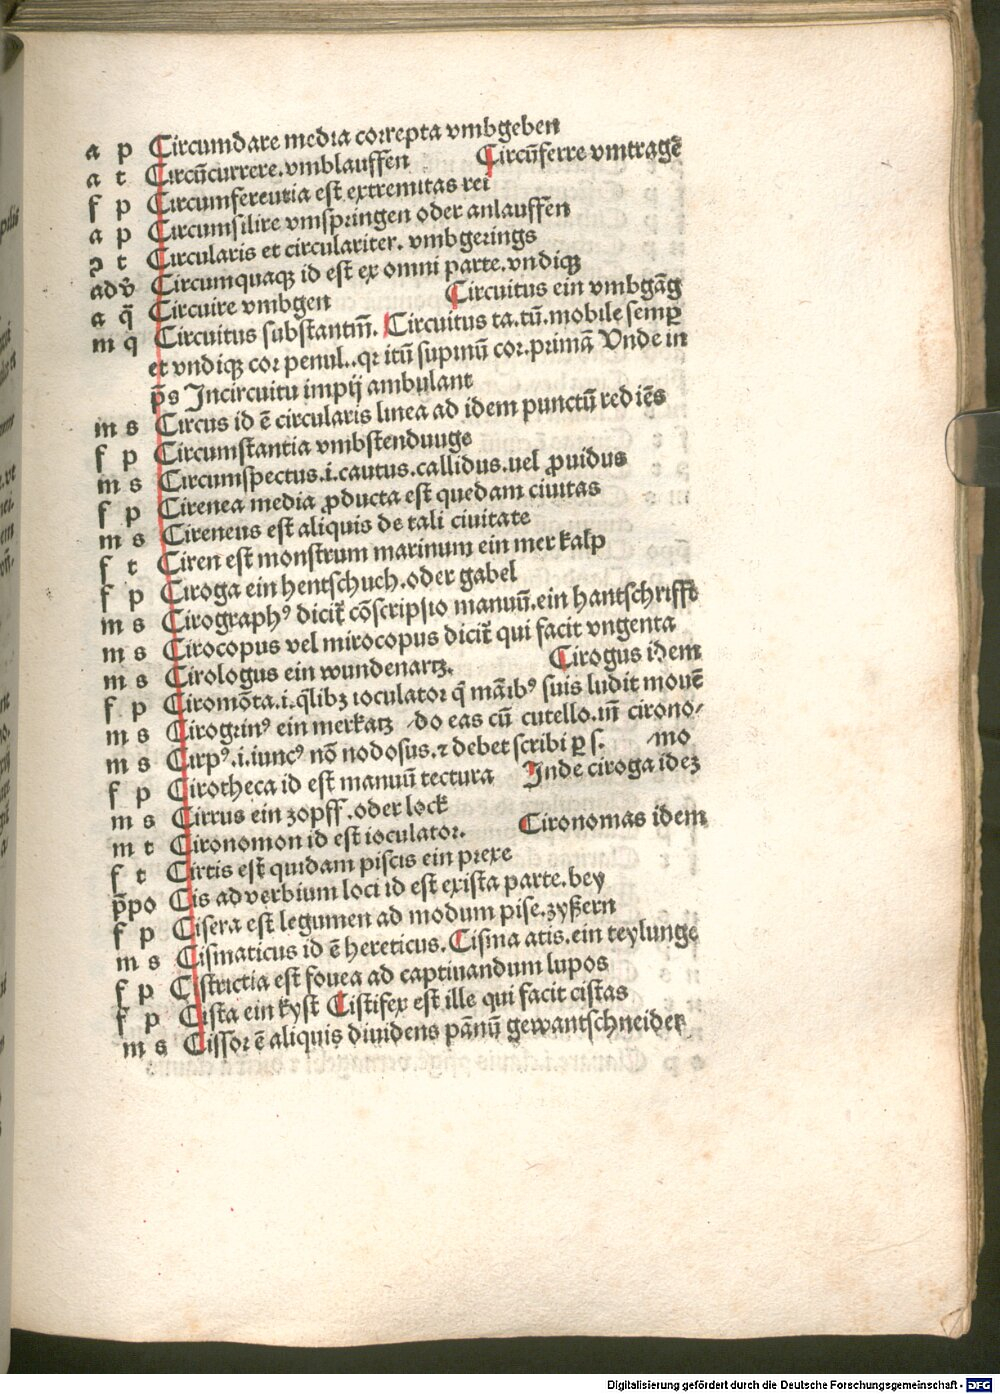 a p Circumdare media correpta vmbgeben
a t Circūcurrere.vmblauffen Circūferre vmtragē
f p Circumferentia est extremitas rei
a p Circumsilire vmspringen oder anlauffen
ꝯ t Circularis et circulariter. vmbgerings
adv̄ Circumquaqꝫ id est ex omni parte.vndiqꝫ
a q̄ Circuire vmbgen Circuitus ein vmbgāg
m q Circuitus substantiū. Circuitus ta.tū.mobile semꝑ
et vndiqꝫ cor penul..qꝛ itū supinū cor.primā Vnde in
p̄s Incircuitu impij ambulant
m s Circus id ē circularis linea ad idem punctū rediēs
f p Circumstantia vmbstenduuge
m s Circumspectus.i.cautus.callidus.uel ꝓuidus
f p Cirenea media ꝓducta est quedam ciuitas
m s Cireneus est aliquis de tali ciuitate
f t Ciren est monstrum marinum ein mer kalp
f p Ciroga ein hentschuch.oder gabel
m s Cirographꝰ dicit̄ cōscripsio manuū.ein hantschrifft
m s Cirocopus vel mirocopus dicit̄ qui facit vngenta
m s Cirologus ein wundenartz. Cirogus idem
f p Ciromōta.i.q̄libꝫ ioculator q̄ māibꝰ suis ludit mouē
m s Cirogrinꝰ ein merkatz do eas cū cutello.uñ cirono⸗
m s Cirpꝰ.i.iuncꝰ nō nodosus.⁊ debet scribi ꝑ s. mo
f p Cirotheca id est manuū tectura Inde ciroga ideꝫ
m s Cirrus ein zopff.oder lock
m t Cironomon id est ioculator. Cironomas idem
f t Cirtis est quidam piscis ein prexe
p̄po Cis adverbium loci id est exista parte.bey
f p Cisera est legumen ad modum pise.zyßern
m s Cismaticus id ē hereticus. Cisma atis.ein teylunge
f p Cistrictia est fouea ad captiuandum lupos
f p Cista ein kyst Cistifex est ille qui facit cistas
m s Cissor ē aliquis diuidens pānū gewantschneider
Digitalisierung gefördert durch die Deutsche Forschungsgemeinschaft - DFG